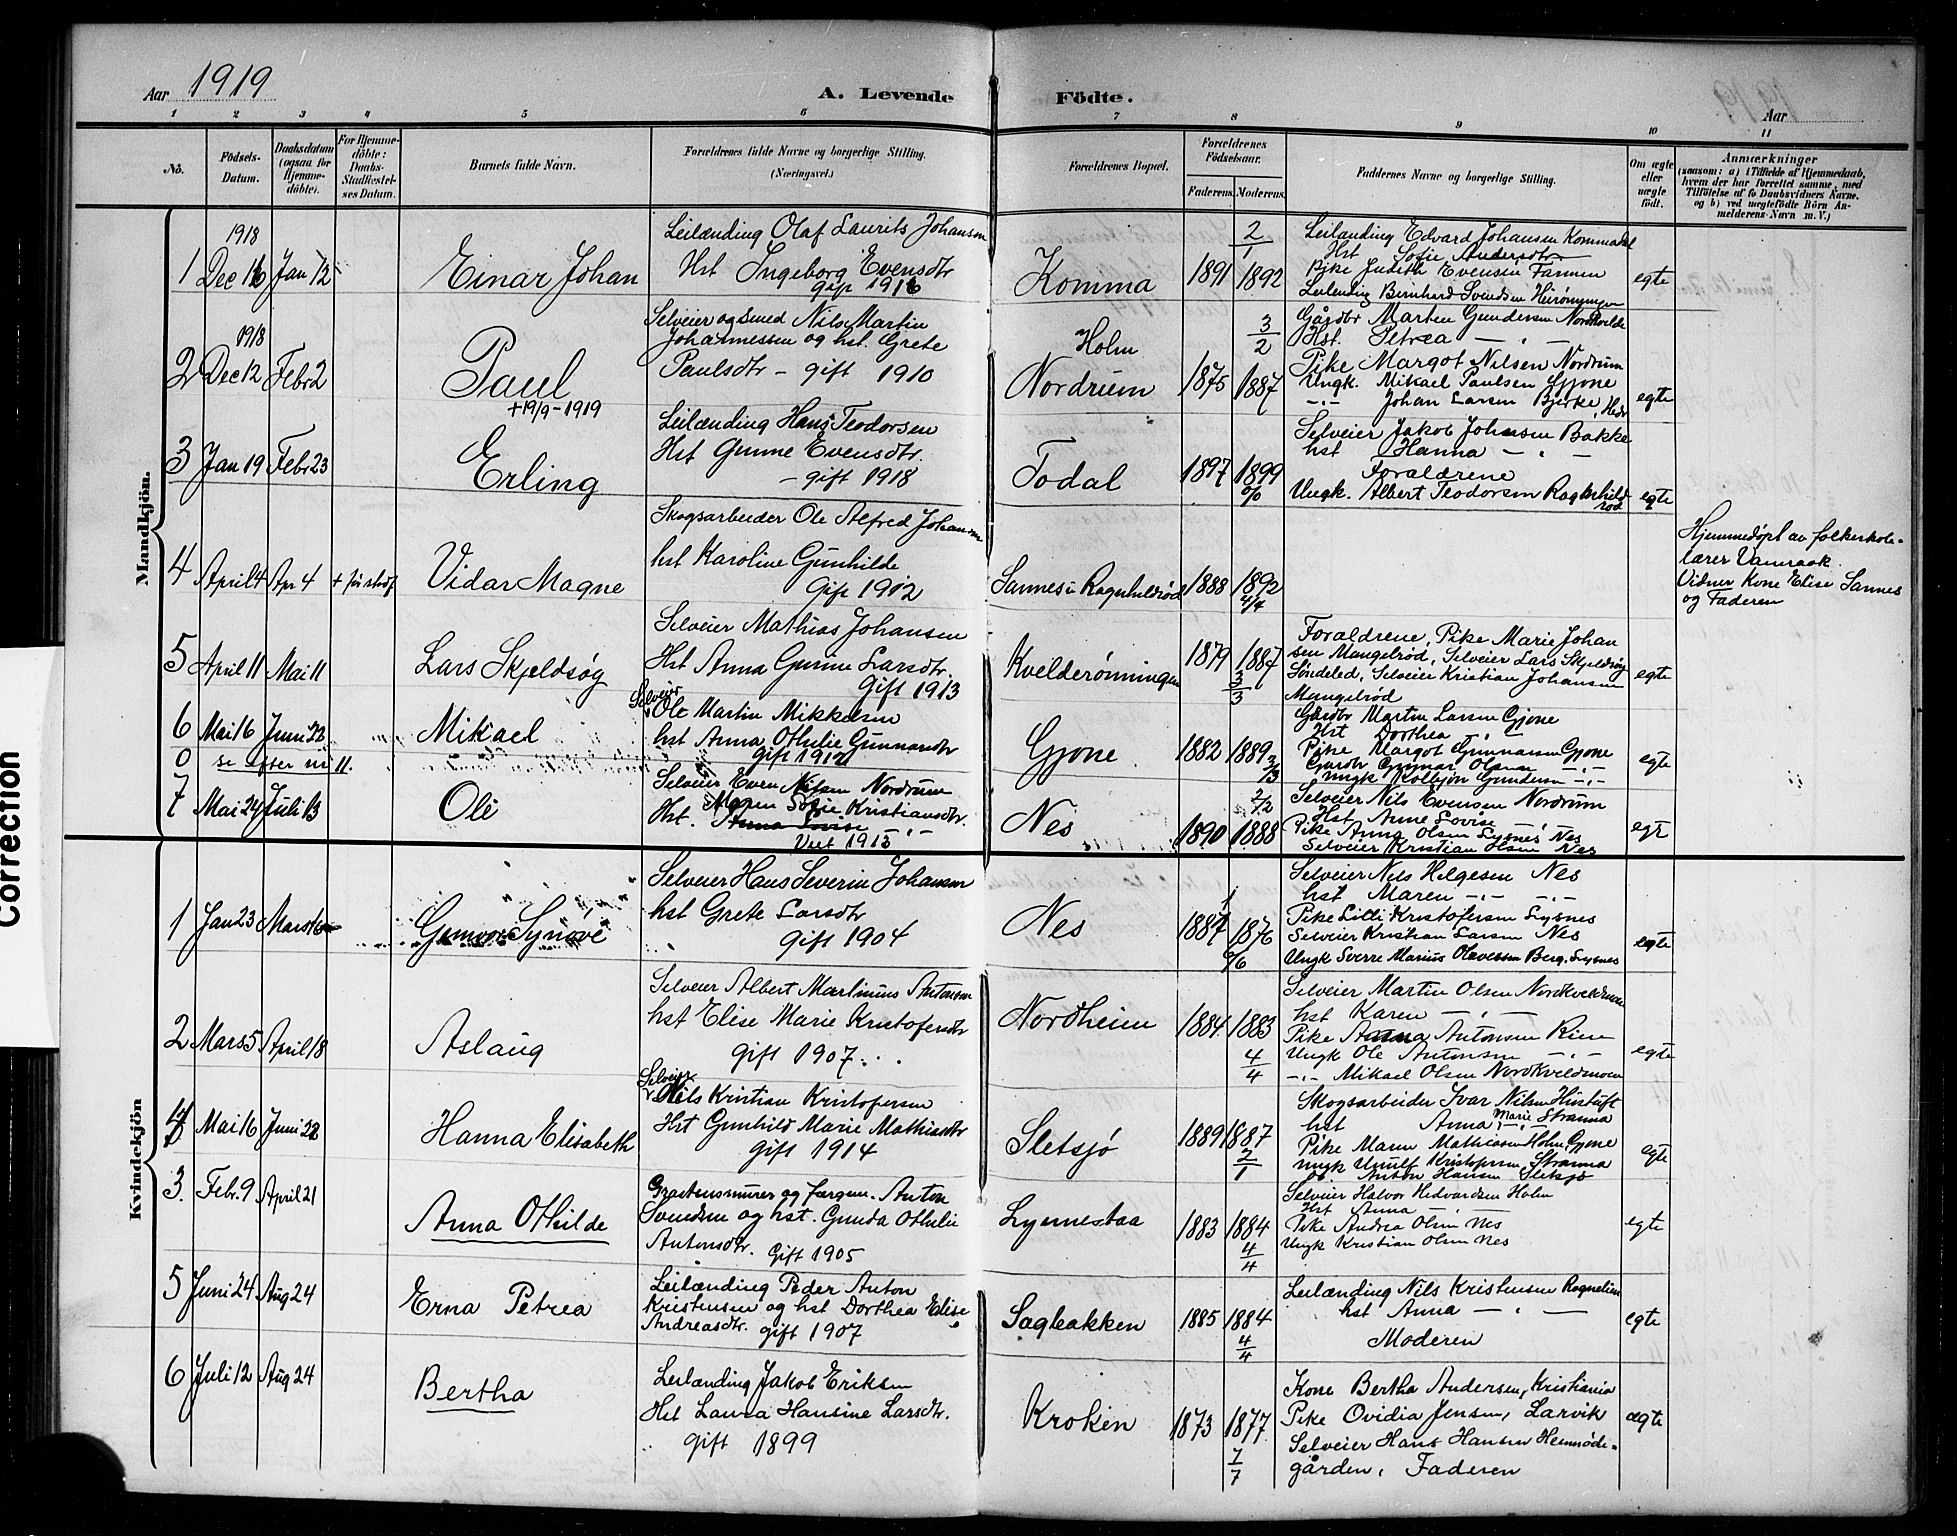 Aar 1919
A. Levende Födte.
Aar
1 2 3 4 5 6 7 8 9 10 11
No.
Födsels-Datum.
Daabsdatum (ogsaa for Hjemme-döbte).
For Hjemme-döbte: Daabs-Stadfæstelses Datum.
Barnets fulde Navn.
Forældrenes fulde Navne og borgerlige Stilling.
(Næringsvei.)
Forældrenes Bopæl.
Forældrenes Födselsaar.
Faderens. Moderens.
Faddernes Navne og borgerlige Stilling.
Om ægte eller uægte födt.
Anmærkninger
(saasom: a) i Tilfælde af Hjemmedaab,
hvem der har forrettet samme, med
Tilföielse af to Daabsvidners Navne.
og b) ved uegtefödte Börn An-
melderens Navn m. V.)
Mandkjön.
1918
1 Dec 16 Jan 12
Einar Johan
Leilænding Olaf Laurits Johansen
Hst Ingeborg Evensdtr
gift 1916
Komma
1891 1892
2/1
Leilænding Edvard Johansen Kommadal
Hst Sofie Andersdtr
Pike Judith Evensen Farmen
Leilending Bernhard Svendsen
egte
1918
2 Dec 12 Febr 2
Paul
+19/9-1919
Selveier og smed Nils Martin
Johannessen og hst. Grete
Paulsdtr - gift 1910
Holm
Nordrum
1875 1887
3/2
Gårdbr Marten Gundersen Nordkvelde
Hst. Petrea — " —
Pike Margot Nilsen Nordrum
Ungk. Mikael Paulsen Gjone
-"- Johan Larsen Bjerke, Hedr
egte
3 Jan 19 Febr 23
Erling
Leilænding Hans Teodorsen
Hst Gunne Evensdtr.
- gift 1918
Todal
1897 1899
Selveier Jakob Johnsen Bakke
hst Hanna — " —
Forældrene
Ungk. Albert Teodorsen Ragnhild
rød
egte
4 April 4 Apr 4
Vidar Magne
Skogsarbeider Ole Alfred Johansen
hst Karoline Gunhilde
Gift 1902
Sannes i Ragnhildrød
1888 1892
4/4
Hjemmedøpt av folkeskole-
lærer Vamraak.
Vidner Kone Elise Sannes
og Faderen
5 April 11 Mai 11
Lars Skjeldsøg
Selveier Mathias Johansen
Hst Anna Gurine Larsdtr.
Gift 1913
Kvelderønningen
1879 1887
3/3
Foraldrene, Pike Marie Johan
sen Mangelrød, Selveier Lars Skjeldsøg
Søndeled, Selveier Kristian Johansen
Mangelrød
egte
6 Mai 16 Juni 22
Mikael
Selveier
Ole Martin Mikkelsen
hst Anna Othilie Gunnarsdtr
Gift 1912
Gjone
1882 1889
2/3
Gårdbr Martin Larsen Gjone
Hst Dorthea — " —
Pike Margot Gunnarsen Gjone
Gårdb Gunnar Olsen -"-
Ungk Kolbjørn Gundersen -"-
egte
0 se efter nr 11.
7 Mai 24 Juli 13
Ole
Selveier Even Nilsen Nordrum
Hst. Maren Sofie Kristiansdtr.
Anna Lovise -"-
Viet 1915
Nes
1890 1888
2/2
Selveier Nils Evensen Nordrum
Hst Anne Lovise
Pike Anna Olsen Lysnes Nes
Selveier Kristian Olsen Nes
egte
Kvindekjön
1 Jan 23 Mars 16
Gunvor Synøve
Selveier Hans Severin Johansen
hst Grete Larsdtr
Gift 1904
Nes
1887 1876
6/6
Selveier Nils Helgesen Nes
hst Maren -"- -"-
Pike Lilli Kristofersen Lysnes
Selveier Kristian Larsen Nes
Ungk Sverre Marius Olavesen Berg. Lysnes
egte
2 Mars 5 April 18
Aslaug
Selveier Albert Martinius Antonsen
hst Elise Marie Kristofersdtr
gift 1907
Nordheim
1884 1883
4/4
Selveier Martin Olsen Nordkveldmoen
hst Karen — " —
Pike Anna Antonsen Rien
Ungk Ole Antonsen -"-
-"- Mikael Olsen Nordkveldmoen
egte
4 Mai 16 Juni 22
Hanna Elisabeth
Selveier
Nils Kristian Kristofersen
Hst Gunhild Marie Mathiasdtr
gift 1914
Sletsjø
1889 1887
2/1
Skogsarbeider Ivar Nilsen
hst Anna Marie Stranna
Pike Maren Mathiasen Holm Gjone
Ungk Kristofersen Stranna
Anton Hansen Sletsjø
egte
3. Febr. 9 April 21
Anna Othilde
Graastensmurer og fargem. Anton
Svendsen og hst. Gunda Othilie
Antonsdtr. Gift 1905
Lysnestaa
1883 1884
4/4
Selveier Halvor Hedvardsen Holm
Hst Anna — " —
Pike Andrea Olsen Nes
Ungk Kristian Olsen Nes
egte
5 Juni 24 Aug 24
Erna Petrea
Leilænding Peder Anton
Kristensen og hst Dorthea Elise
Andreasdtr. gift 1907
Sagbakken
1885 1884
4/4
Leilænding Nils Kristensen Rognelien
hst Anna — " —
Moderen
egte
6 Juli 12 Aug 24
Bertha
Leilænding Jakob Eriksen
Hst Laura Hansine Larsdtr.
gift 1899
Kroken
1873 1877
7/7
Kone Bertha Andersen, Kristiania
Pike Ovidia Jensen, Larvik
Selveier Hans Hansen Hemsøde-
gården, Faderen
ægte
Correction